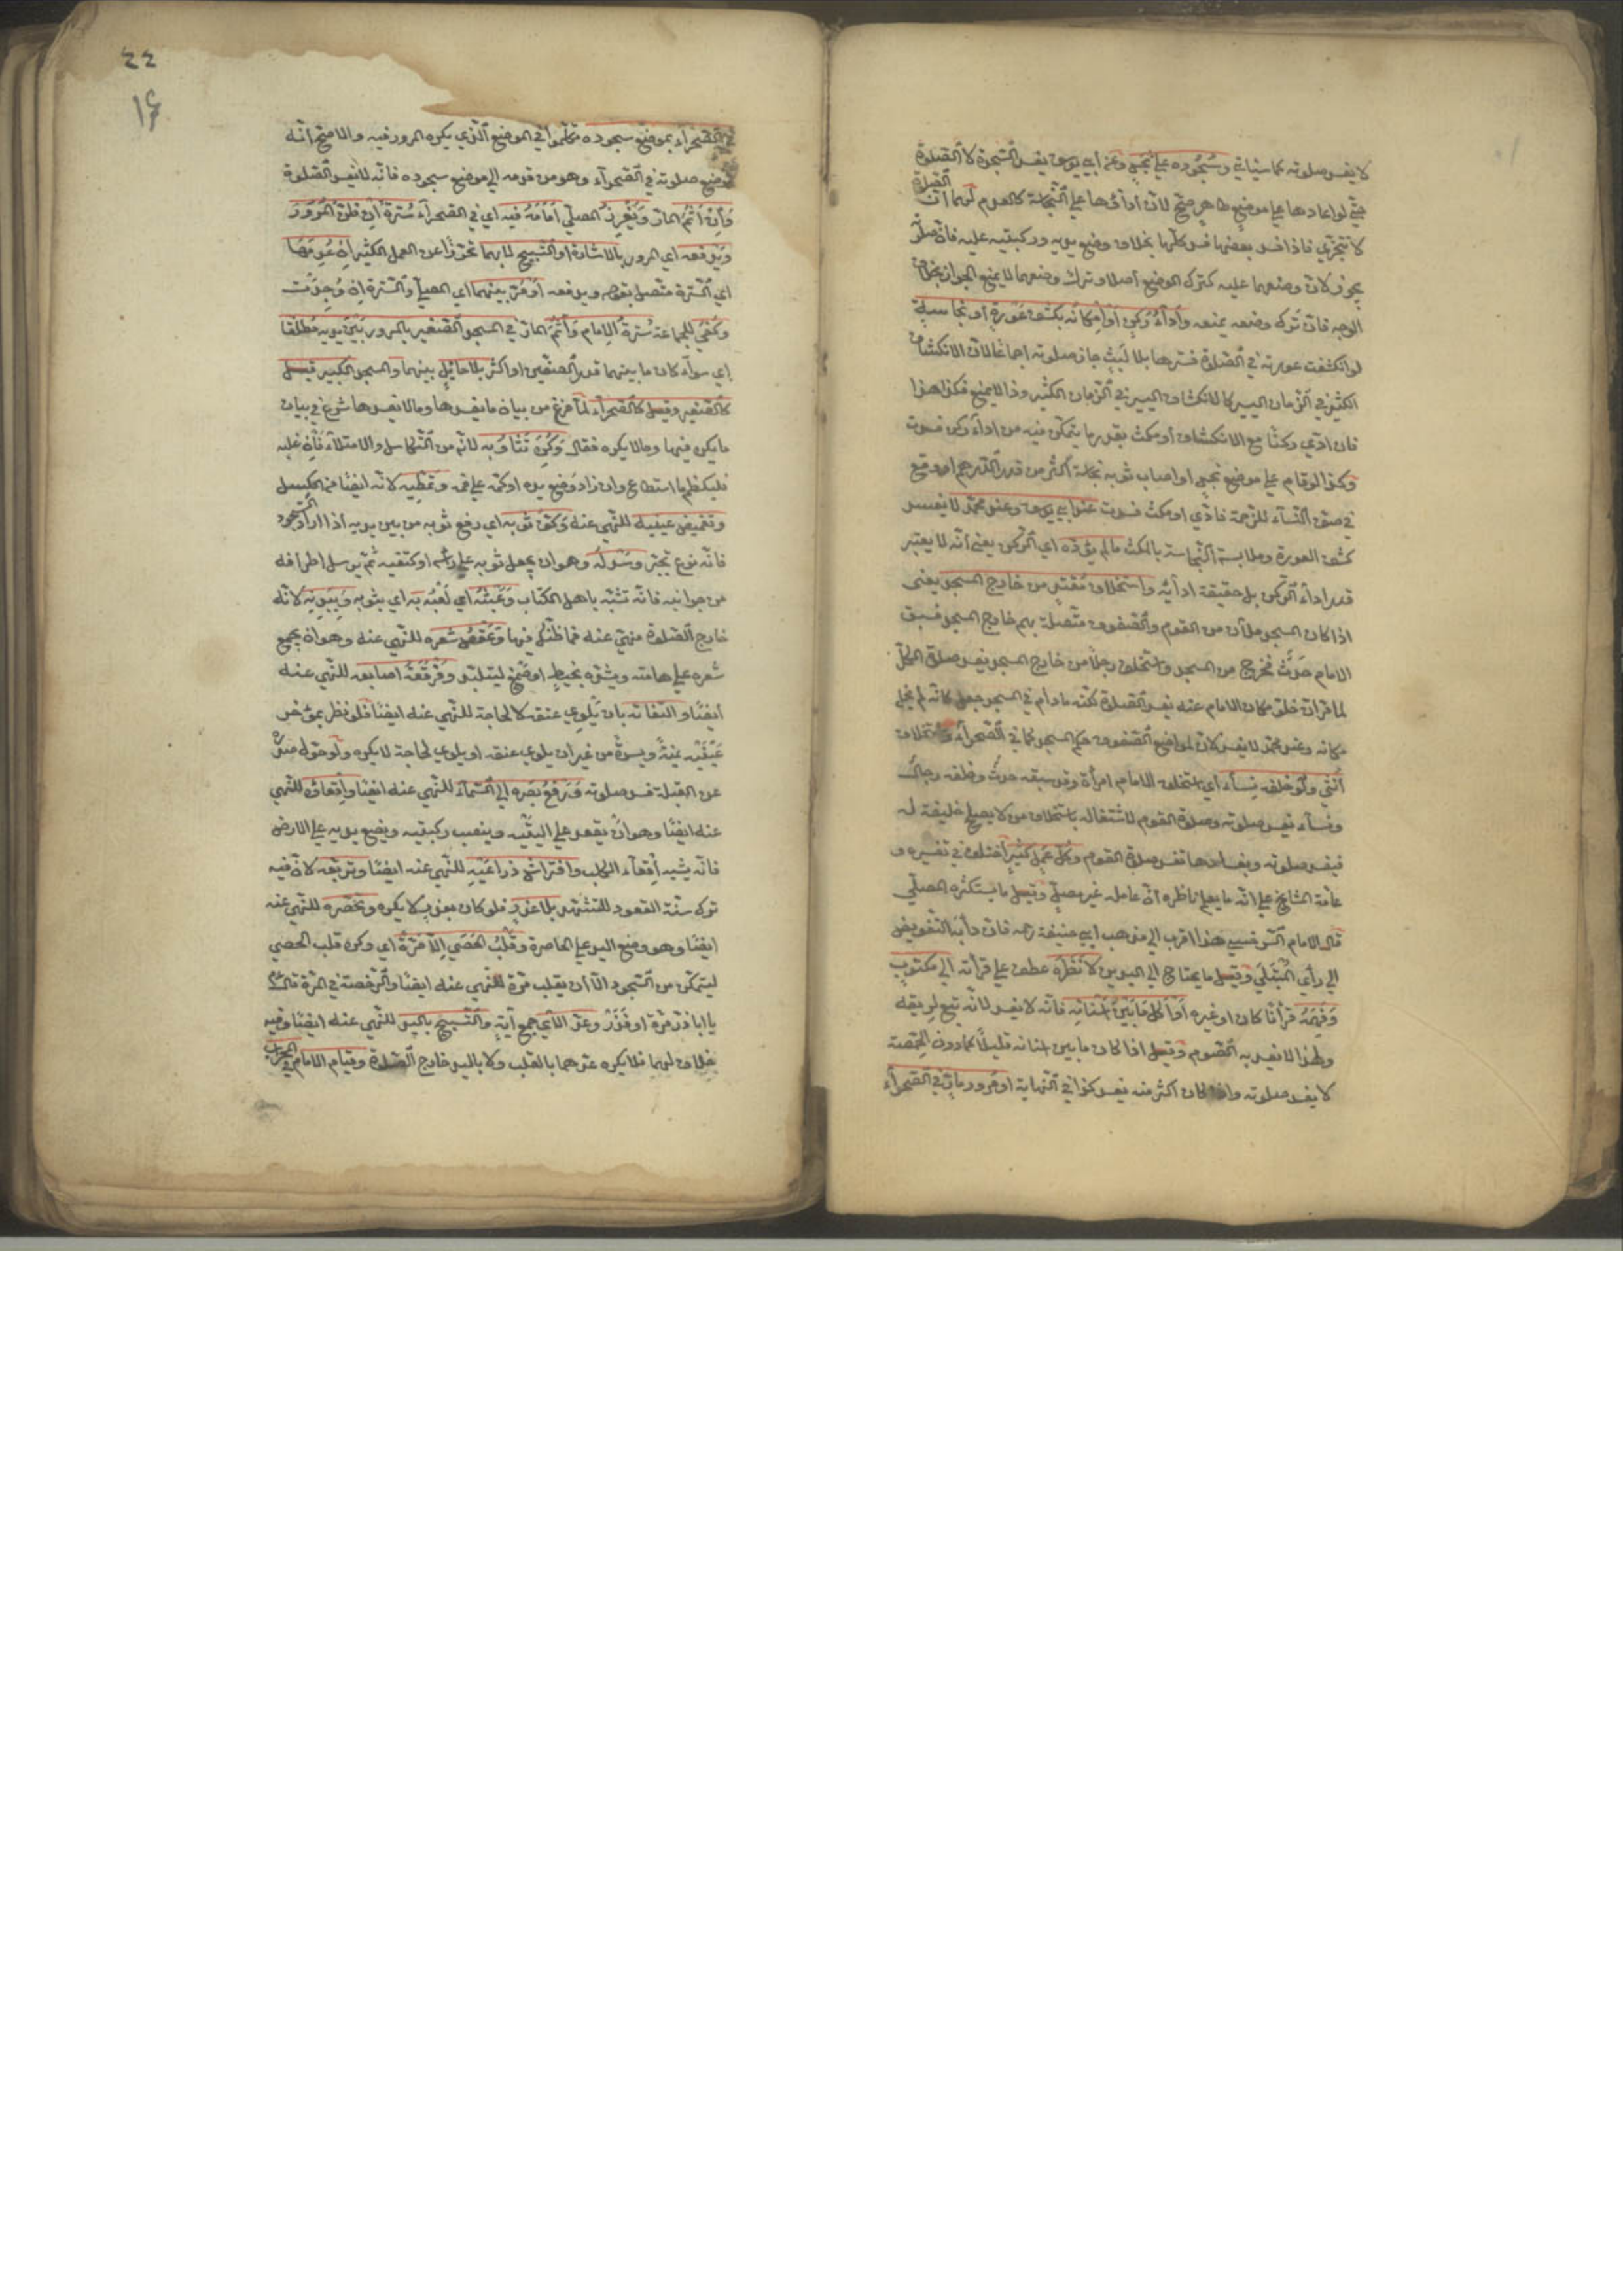 لا يفسد صلوته كما سيأتي وسجوده على نجس وعن أبي يوسف يفسد السجدة لا الصلوة
حتى لو اعادها على موضع طاهر صح لان أداؤها على النجاسة كالعدم لهما ان الصلوة
لا تتجزي فاذا فسد بعضها فسد كلها بخلاف وضع يديه وركبتيه عليه فان صلوته
يجوز لان وضعهما عليه كترك الوضع أصلا وترك وضعهما لا يمنع الجواز بخلاف
الوجه فان ترك وضعه يمنعه وأداء ركن أو إمكانه بكشف عورة أو نجاسة
لو انكشفت عورته في الصلوة فسترها بلا لبث جاز صلوته اجماعا لان الانكشاف
الكثير في الزمان اليسير كالانكشاف اليسير في الزمان الكثير وذا لا يمنع فكذا هذا
فان ادي ركنا مع الانكشاف أو مكث بقدر ما يتمكن فيه من اداء ركن فسدت
وكذا لو قام على موضع نجس او اصاب ثوبه نجاسة أكثر من قدر الدرهم او وقع
في صف النساء للزحمة فادي او مكث فسدت عند ابي يوسف وعند محمد لا يفسد
كشف العورة وملابسة النجاسة بالمكث ما لم يؤده اي الركن يعني أنه لا يعتبر
قدر اداء الركن بل حقيقة ادائه واستخلاف مقتد من خارج المسجد يعني
اذا كان المسجد ملآن من القوم والصفوف متصلة بهم خارج المسجد فسبق
الامام حدث فخرج من المسجد واستخلف رجلا من خارج المسجد يفسد صلوة الكل
لما قران خلو مكان الامام عنه يفسد الصلوة لكنه مادام في المسجد جعل كانه لم يخل
مكانه وعند محمد لا يفسد لان لمواضع الصفوف حكم المسجد كما في الصحراء واستخلاف
أنثى ولو خلفه نساء أي استخلف الامام امرأة وقد سبقه حدث وخلفه رجال
ونساء تفسد صلوته وصلوة القوم لاشتغاله باستخلاف من لا يصلح خليفة له
فيفسد صلوته وبفسادها تفسد صلوة القوم وكل عمل كثير اختلف في تفسيره و
عامة المشايخ على انه ما يعلم ناظره أن عامله غير مصل وقيل ما يستكثره المصلي
قال الامام السرخسي هذا اقرب الى مذهب ابي حنيفة رحمه فان دأبه التفويض
الى رأي المبتلي وقيل ما يحتاج الى اليدين لا نظره عطف على قرأته الى مكتوب
وفهمه قرأنا كان او غيره أو أكل ما بين أسنانه فانه لا يفسد لانه تبع لريقه
ولهذا لا يفسد به الصوم وقيل اذا كان ما بين اسنانه قليلا كما دون الحمصة
لا يفسد صلوته واذا كان اكثر منه يفسد كذا في النهاية او مرور مار في الصحراء
٢٢
١٦
في الصحراء بموضع سجوده تكلموا في الموضع الذي يكره المرور فيه والاصح انه
موضع صلوته في الصحراء وهو من قدمه الى موضع سجوده فانه لا يفسد الصلوة
وأن أثم المار ويغرز المصلي أمامه فيه اي في الصحراء سترة أن ظن المرور
ويدفعه اي المرور بالاشارة او التسبيح لا بهما تحرزا عن العمل الكثير ان عدمها
اي السترة متصل بقوله ويدفعه أو مر بينهما اي المصلي والسترة ان وجدت
وكفي للجماعة سترة الامام وأثم المار في المسجد الصغير بالمرور بين يديه مطلقا
اي سواء كان ما بينهما قدر الصفين او اكثر بلا حائل بينهما والمسجد الكبير قيل
كالصغير وقيل كالصحراء لما فرغ من بيان ما يفسدها وما لا يفسدها شرع في بيان
ما يكره فيها وما لا يكره فقال وكره تثاؤبه لانه من التكاسل والامتلاء فان غلبه
فليكظم ما استطاع وان زاد وضع يده او كمه على فمه وتمطيه لانه ايضا من الكسل
وتغميض عينيه للنهي عنه وكف ثوبه اي رفع ثوبه من بين يديه اذا اراد السجود
فانه نوع تجبر وسدله وهو ان يجعل ثوبه على رأسه او كتفيه ثم يرسل اطرافه
من جوانبه فانه تشبه باهل الكتاب وعبثه اي لعبه به اي بثوبه وببدنه لانه
خارج الصلوة منهي عنه فما ظنك فيها وعقص شعره للنهي عنه وهو ان يجمع
شعره على هامته ويشده بخيط او صمغ ليتلبد وفرقعة اصابعه للنهي عنه
أيضا والتفاته بان يلوي عنقه لا لحاجة للنهي عنه ايضا فلو نظر بمؤخر
عينيه يمنة ويسرة من غير ان يلوي عنقه او يلوي لحاجة لا يكره ولو حول صدره
عن القبلة فسد صلوته ورفع بصره الى السماء للنهي عنه ايضا وأقعاؤه للنهي
عنه ايضا وهو أن يقعد على اليتيه وينصب ركبتيه ويضع يديه على الارض
فانه يشبه إقعاء الكلب وافتراش ذراعيه للنهي عنه ايضا وتربعه لان فيه
ترك سنة القعود للتشهد بلا عذر فلو كان بعذر لا يكره وتخصره للنهي عنه
ايضا وهو وضع اليد على الخاصرة وقلب الحصي إلا مرة اي وكره قلب الحصي
ليتمكن من السجود الا ان يقلب مرة للنهي عنه ايضا والرخصة في المرة قال عم
يا ابا ذر مرة او فذر وعد الآي جمع آية والتسبيح باليد للنهي عنه ايضا وفيه
خلاف لهما فلا يكره عدهما بالقلب ولا باليد خارج الصلوة وقيام الامام في المحراب